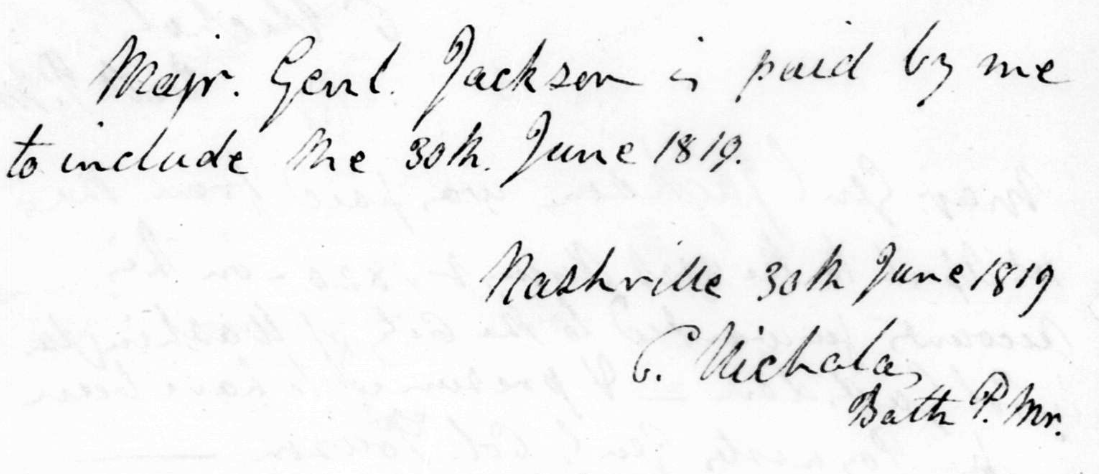 Majr. Genl. Jackson is paid by me
to include the 30th. June 1819.
Nashville 30th June 1819
C. Nicholas
Battn P. Mr.